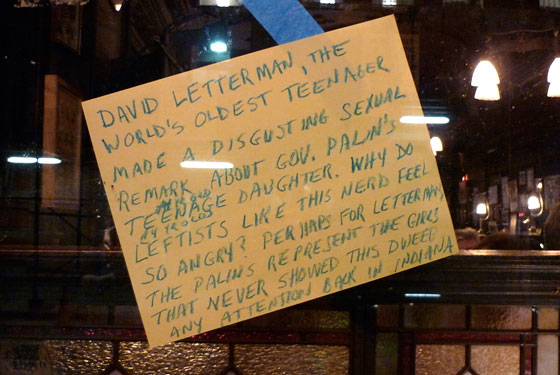 DAVID LETTERMAN, THE
WORLD'S OLDEST TEENAGER
MADE A DISGUSTING SEXUAL
REMARK ABOUT GOV. PALIN'S
TEENAGE DAUGHTER. WHY DO
LEFTISTS LIKE THIS NERD FEEL
SO ANGRY? PERHAPS FOR LETTERMAN,
THE PALINS REPRESENT THE GIRLS
THAT NEVER SHOWED THIS DWEEB
ANY ATTENTION BACK IN INDIANA